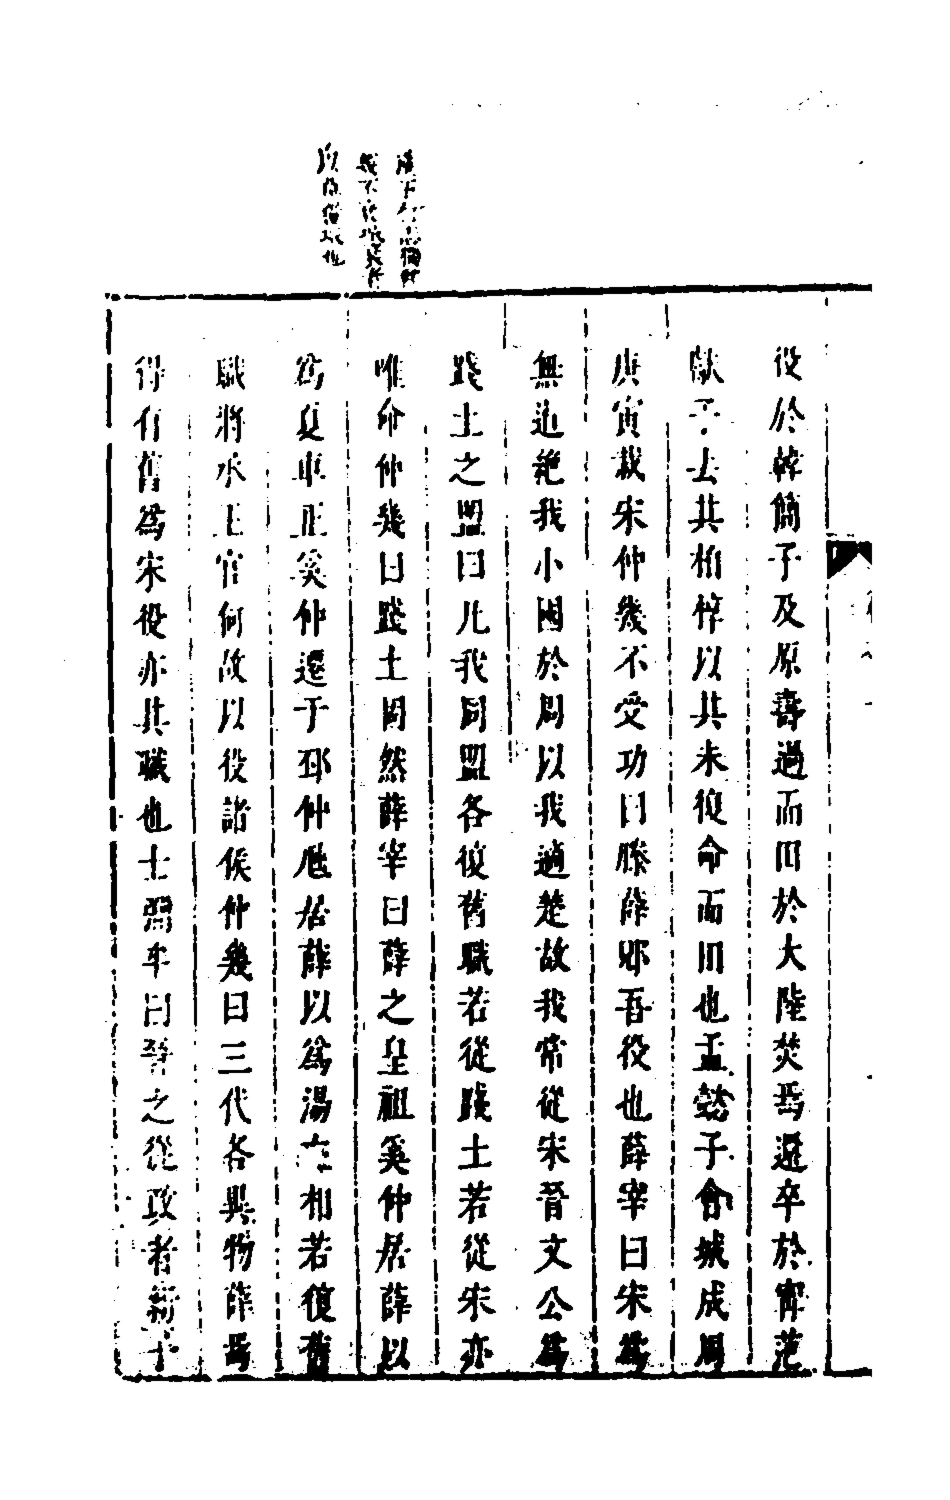 役於韓簡子及原壽過而田於大陸焚焉還卒於甯范
獻子去其柏椁以其未復命而田也孟懿子會城成周
庚寅栽宋仲幾不受功曰滕薛郳吾役也薛宰曰宋爲
無道絶我小國於周以我適楚故我常從宋晉文公爲
踐土之盟曰凡我同盟各復舊職若從踐土若從宋亦
唯命仲幾曰踐土固然薛宰曰薛之皇祖奚仲居薛以
爲夏車正奚仲遷于邳仲虺居薛以爲湯左相若復舊
職將承王官何故以役諸侯仲幾曰三代各異物薛焉
得有舊爲宋役亦其職也士彌牟曰晉之從政者新子